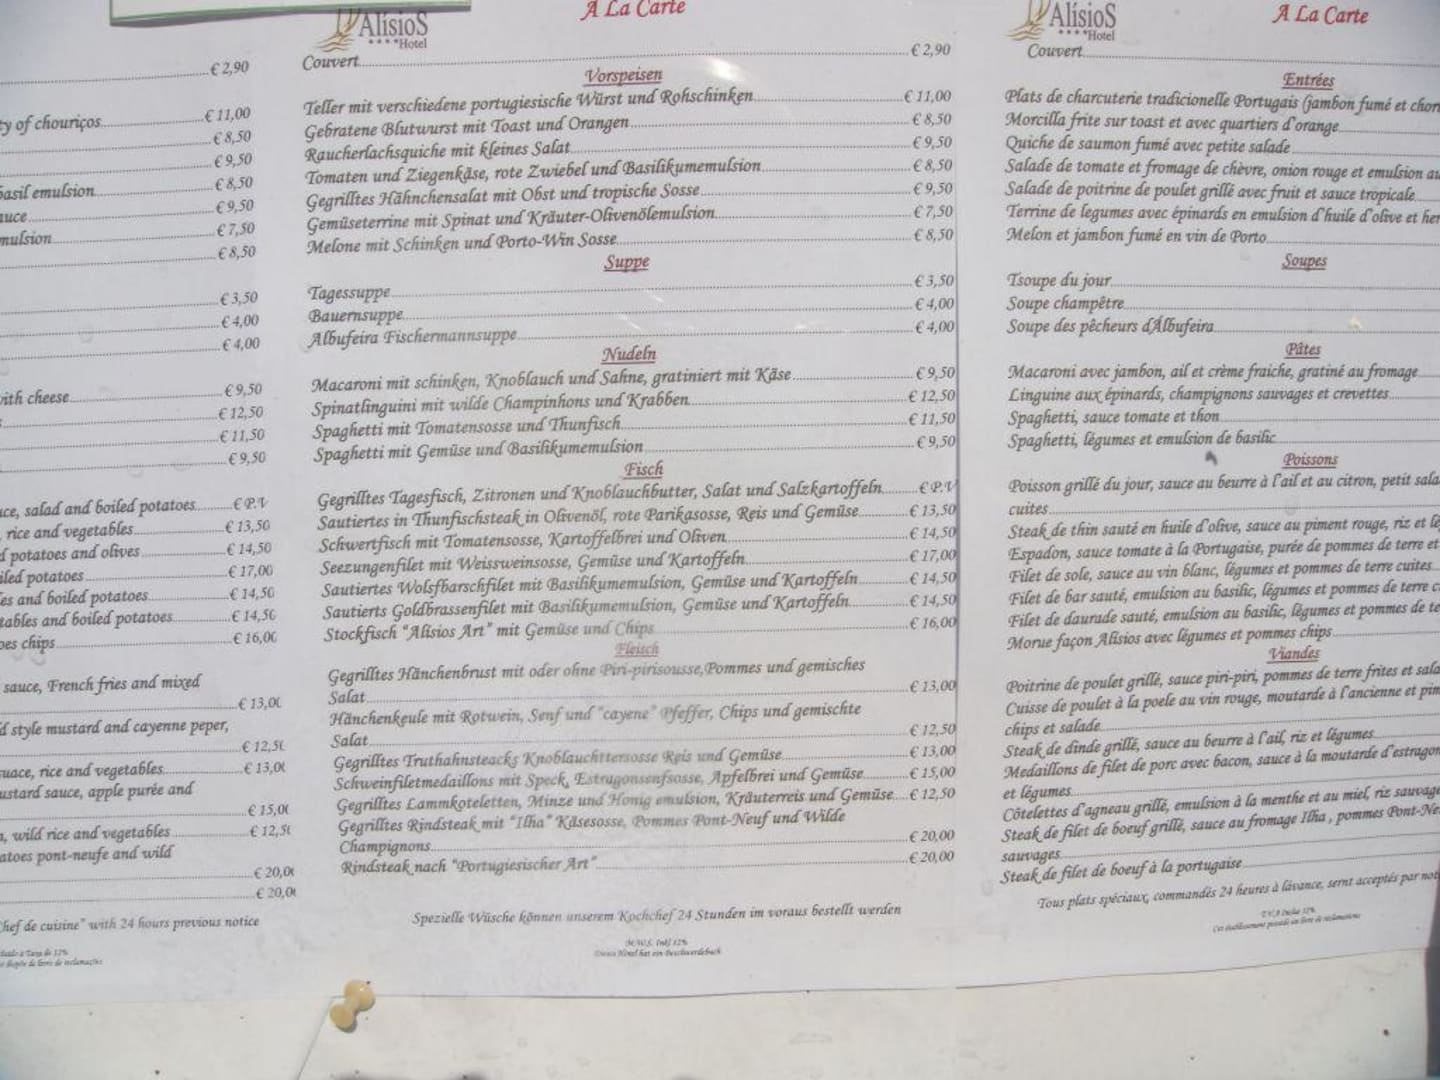 € 2,90
ty of chouriços € 11,00
€ 8,50
€ 9,50
basil emulsion € 8,50
auce € 9,50
mulsion € 7,50
€ 8,50
€ 3,50
€ 4,00
€ 4,00
with cheese € 9,50
€ 12,50
€ 11,50
€ 9,50
ce, salad and boiled potatoes € P.V
, rice and vegetables € 13,50
d potatoes and olives € 14,50
iled potatoes € 17,00
es and boiled potatoes € 14,50
tables and boiled potatoes € 14,50
oes chips € 16,00
sauce, French fries and mixed
€ 13,00
d style mustard and cayenne peper,
€ 12,50
uace, rice and vegetables € 13,00
ustard sauce, apple purée and
€ 15,00
, wild rice and vegetables € 12,50
atoes pont-neufe and wild
€ 20,00
€ 20,00
Chef de cuisine" with 24 hours previous notice
AlísioS
Hotel
A La Carte
Couvert € 2,90
Vorspeisen
Teller mit verschiedene portugiesische Würst und Rohschinken € 11,00
Gebratene Blutwurst mit Toast und Orangen € 8,50
Raucherlachsquiche mit kleines Salat € 9,50
Tomaten und Ziegenkäse, rote Zwiebel und Basilikumemulsion € 8,50
Gegrilltes Hähnchensalat mit Obst und tropische Sosse € 9,50
Gemüseterrine mit Spinat und Kräuter-Olivenölemulsion € 7,50
Melone mit Schinken und Porto-Win Sosse € 8,50
Suppe
Tagessuppe € 3,50
Bauernsuppe € 4,00
Albufeira Fischermannsuppe € 4,00
Nudeln
Macaroni mit schinken, Knoblauch und Sahne, gratiniert mit Käse € 9,50
Spinatlinguini mit wilde Champinhons und Krabben € 12,50
Spaghetti mit Tomatensosse und Thunfisch € 11,50
Spaghetti mit Gemüse und Basilikumemulsion € 9,50
Fisch
Gegrilltes Tagesfisch, Zitronen und Knoblauchbutter, Salat und Salzkartoffeln € P.V
Sautiertes in Thunfischsteak in Olivenöl, rote Parikasosse, Reis und Gemüse € 13,50
Schwertfisch mit Tomatensosse, Kartoffelbrei und Oliven € 14,50
Seezungenfilet mit Weissweinsosse, Gemüse und Kartoffeln € 17,00
Sautiertes Wolsfbarschfilet mit Basilikumemulsion, Gemüse und Kartoffeln € 14,50
Sautierts Goldbrassenfilet mit Basilikumemulsion, Gemüse und Kartoffeln € 14,50
Stockfisch "Alísios Art" mit Gemüse und Chips € 16,00
Fleisch
Gegrilltes Hänchenbrust mit oder ohne Piri-pirisousse,Pommes und gemisches
Salat € 13,00
Hänchenkeule mit Rotwein, Senf und "cayene" Pfeffer, Chips und gemischte
Salat € 12,50
Gegrilltes Truthahnsteacks Knoblauchttersosse Reis und Gemüse € 13,00
Schweinfiletmedaillons mit Speck, Estragonsenfsosse, Apfelbrei und Gemüse € 15,00
Gegrilltes Lammkoteletten, Minze und Honig emulsion, Kräuterreis und Gemüse € 12,50
Gegrilltes Rindsteak mit "Ilha" Käsesosse, Pommes Pont-Neuf und Wilde
Champignons € 20,00
Rindsteak nach "Portugiesischer Art" € 20,00
Spezielle Wüsche können unserem Kochchef 24 Stunden im voraus bestellt werden
M.W.S. Inkl 12%
Dieses Hotel hat ein Beschwerdebuch
AlísioS
Hotel
A La Carte
Couvert
Entrées
Plats de charcuterie tradicionelle Portugais (jambon fumé et chor
Morcilla frite sur toast et avec quartiers d'orange
Quiche de saumon fumé avec petite salade
Salade de tomate et fromage de chèvre, onion rouge et emulsion au
Salade de poitrine de poulet grillé avec fruit et sauce tropicale
Terrine de legumes avec épinards en emulsion d'huile d'olive et her
Melon et jambon fumé en vin de Porto
Soupes
Tsoupe du jour
Soupe champêtre
Soupe des pêcheurs d'Álbufeira
Pâtes
Macaroni avec jambon, ail et crème fraiche, gratiné au fromage
Linguine aux épinards, champignons sauvages et crevettes
Spaghetti, sauce tomate et thon
Spaghetti, légumes et emulsion de basilic
Poissons
Poisson grillé du jour, sauce au beurre à l'ail et au citron, petit sala
cuites
Steak de thin sauté en huile d'olive, sauce au piment rouge, riz et lé
Espadon, sauce tomate à la Portugaise, purée de pommes de terre et
Filet de sole, sauce au vin blanc, légumes et pommes de terre cuites
Filet de bar sauté, emulsion au basilic, légumes et pommes de terre c
Filet de daurade sauté, emulsion au basilic, légumes et pommes de te
Morue façon Alísios avec légumes et pommes chips
Viandes
Poitrine de poulet grillé, sauce piri-piri, pommes de terre frites et sala
Cuisse de poulet à la poele au vin rouge, moutarde à l'ancienne et pim
chips et salade
Steak de dinde grillé, sauce au beurre à l'ail, riz et légumes
Medaillons de filet de porc avec bacon, sauce à la moutarde d'estragon
et légumes
Côtelettes d'agneau grillé, emulsion à la menthe et au miel, riz sauvage
Steak de filet de boeuf grillé, sauce au fromage Ilha , pommes Pont-Ne
sauvages
Steak de filet de boeuf à la portugaise
Tous plats spéciaux, commandés 24 heures à lávance, sernt acceptés par not